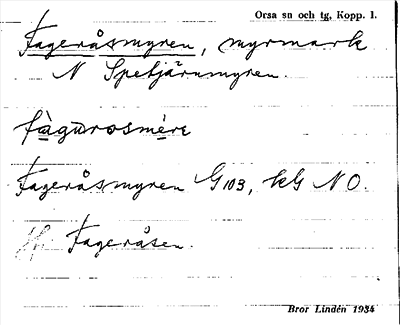 Orsa sn och tg, Kopp. l.
Fageråsmyren, myrmark
N Spetjärnmyren.
fàgurosmère
Fageråsmyren G103, kG NO.
Fageråsen.
Bror Lindén 1934